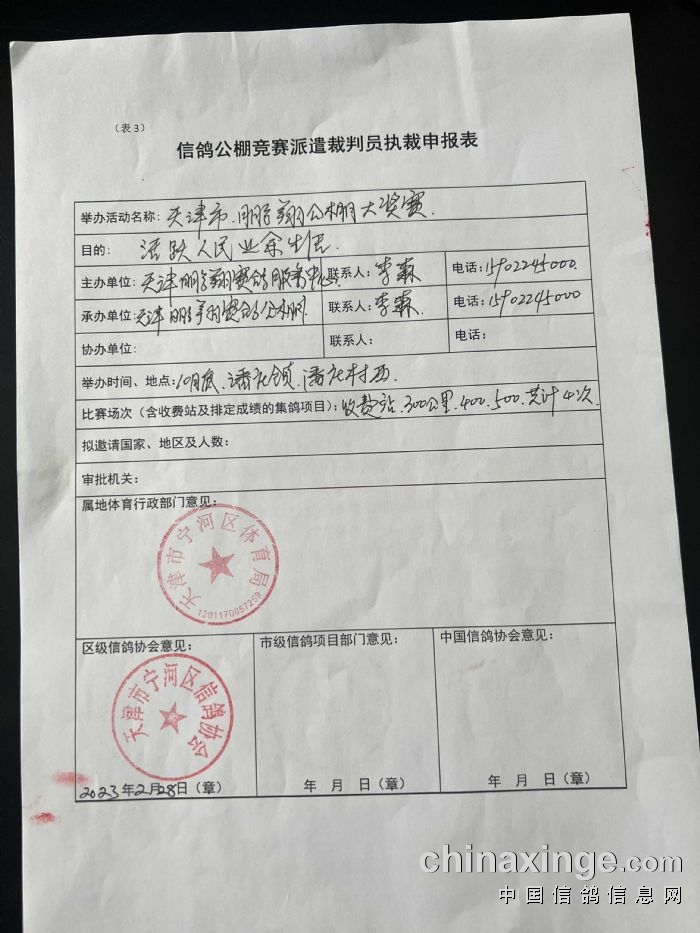 （表3）
信鸽公棚竞赛派遣裁判员执裁申报表
举办活动名称：天津市鹏翔公棚大奖赛.
目的： 活跃人民业余生活.
主办单位：天津鹏翔赛鸽服务中心 联系人：李森 电话：15902245000.
承办单位：天津鹏翔赛鸽公棚 联系人：李森 电话：15902245000
协办单位： 联系人： 电话：
举办时间、地点：10月底.潘庄镇.潘庄村西.
比赛场次（含收费站及排定成绩的集鸽项目）：收费站.300公里.400.500.共计4次.
拟邀请国家、地区及人数：
审批机关：
属地体育行政部门意见：
天津市宁河区体育局
1201170057259
区级信鸽协会意见： 市级信鸽项目部门意见： 中国信鸽协会意见：
天津市宁河区信鸽协会
2023年2月28日（章） 年 月 日（章） 年 月 日（章）
chinaxinge.com
中国信鸽信息网